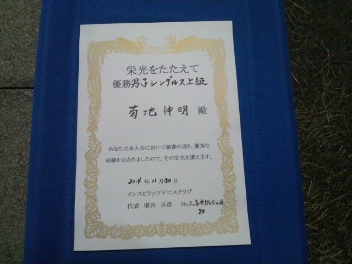 栄光をたたえて
優勝 男子シングルス上級
菊池 伸明 殿
あなたは本大会において頭書の通り、優秀な
成績をおさめましたので、その栄光を讃えます。
年11月30日
インスピリッツテニスクラブ
代表 No.
80